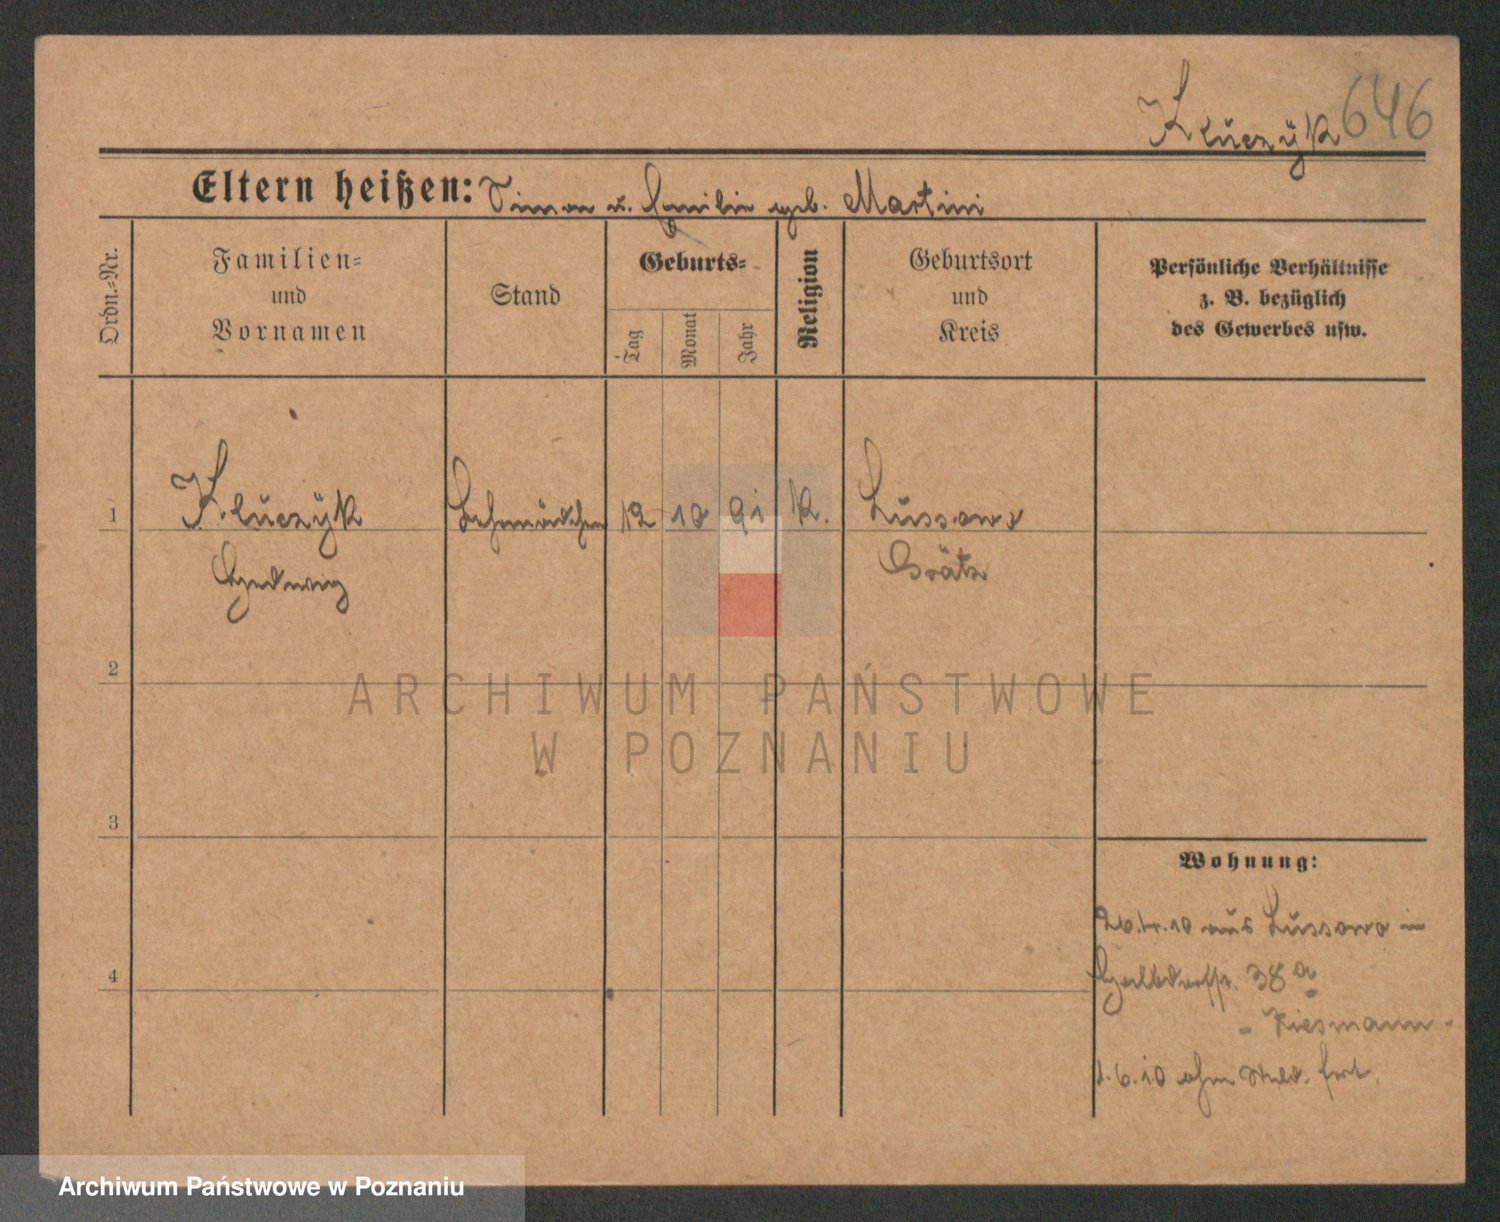 Kluczyk 646
Eltern heißen: Simon u. Emilie geb. Martini
Ordn.=Nr.
Familien=
und
Vornamen
Stand
Geburts=
Tag
Monat
Jahr
Religion
Geburtsort
und
Kreis
Persönliche Verhältnisse
z. B. bezüglich
des Gewerbes usw.
1 Kluczyk Lehrmädchen 12 10 91 K. Lussowo
Hedwig Grätz
2
ARCHIWUM PAŃSTWOWE
W POZNANIU
3
Wohnung:
26.4.10 aus Lussowo in
4
38a
- Kiesmann -
1.6.10 ohne Meld. fort.
Archiwum Państwowe w Poznaniu